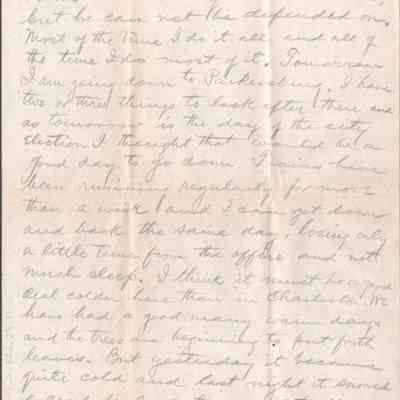 but he can not be depended on.
Most of the time I do it all and all of
the time I do most of it. Tomorrow
I am going down to Parkersburg. I have
two or three things to look after there and
as tomorrow is the day of the city
Election I thought that would be a
good day to go down. Trains have
been running regularly for more
than a week and I can get down
and back the same day, losing only
a little time from the office and not
much sleep. I think it must be a good
deal colder here than in Charleston. We
have had a good many warm days
and the trees are beginning to put forth
leaves. But yesterday it became
quite cold and last night it snowed